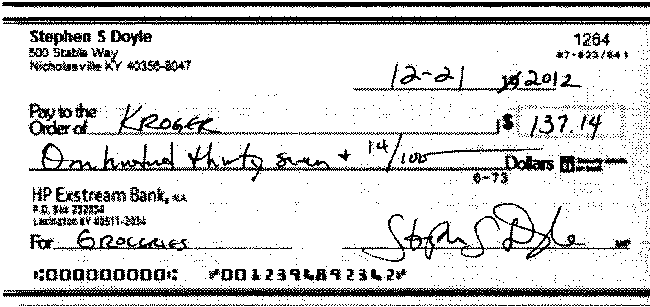 Stephen S Doyle
500 Stable Way
Nicholasville KY 40356-8047
1264
12-21 2012
Pay to the
Order of KROGER $ 137.14
One hundred thirty seven + 14/100 Dollars
6-73
HP Exstream Bank, N.A.
P.O. Box
Lexington KY
For GROCERIES Stephen S Doyle MP